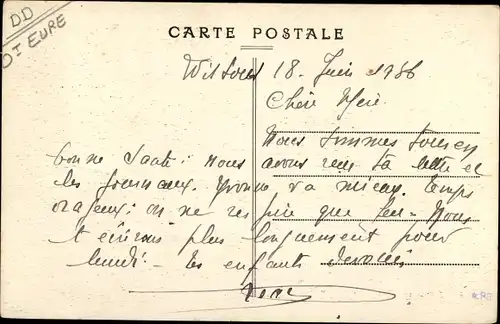 DD
Dt EURE
CARTE POSTALE
18 Juin 1936
Chère Mère.
Nous sommes tous en
bonne Santé: nous avons reçu ta lettre et
les journaux. Yvonne va mieux. temps
orageux: on ne respire que peu. Nous
t'écrirons plus longuement pour
lundi. tes enfants dévoués